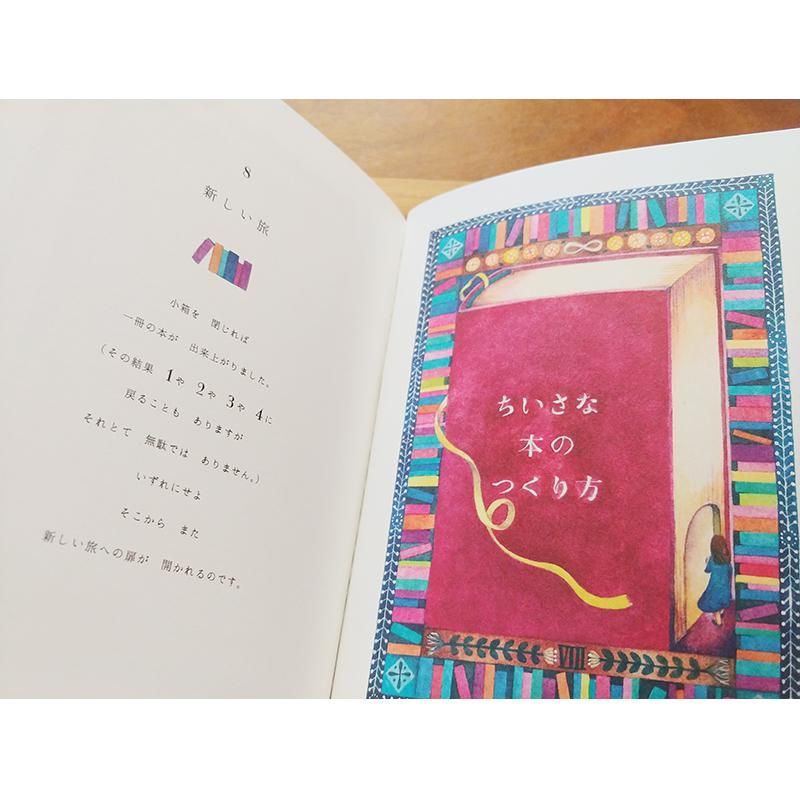 8
新しい旅
小箱を 閉じれば
一冊の本が 出来上がりました。
(その結果 1や 2や 3や 4に
戻ることも ありますが
それとて 無駄では ありません。)
いずれにせよ
そこから また
新しい旅への扉が 開かれるのです。
ちいさな
本の
つくり方
VIII